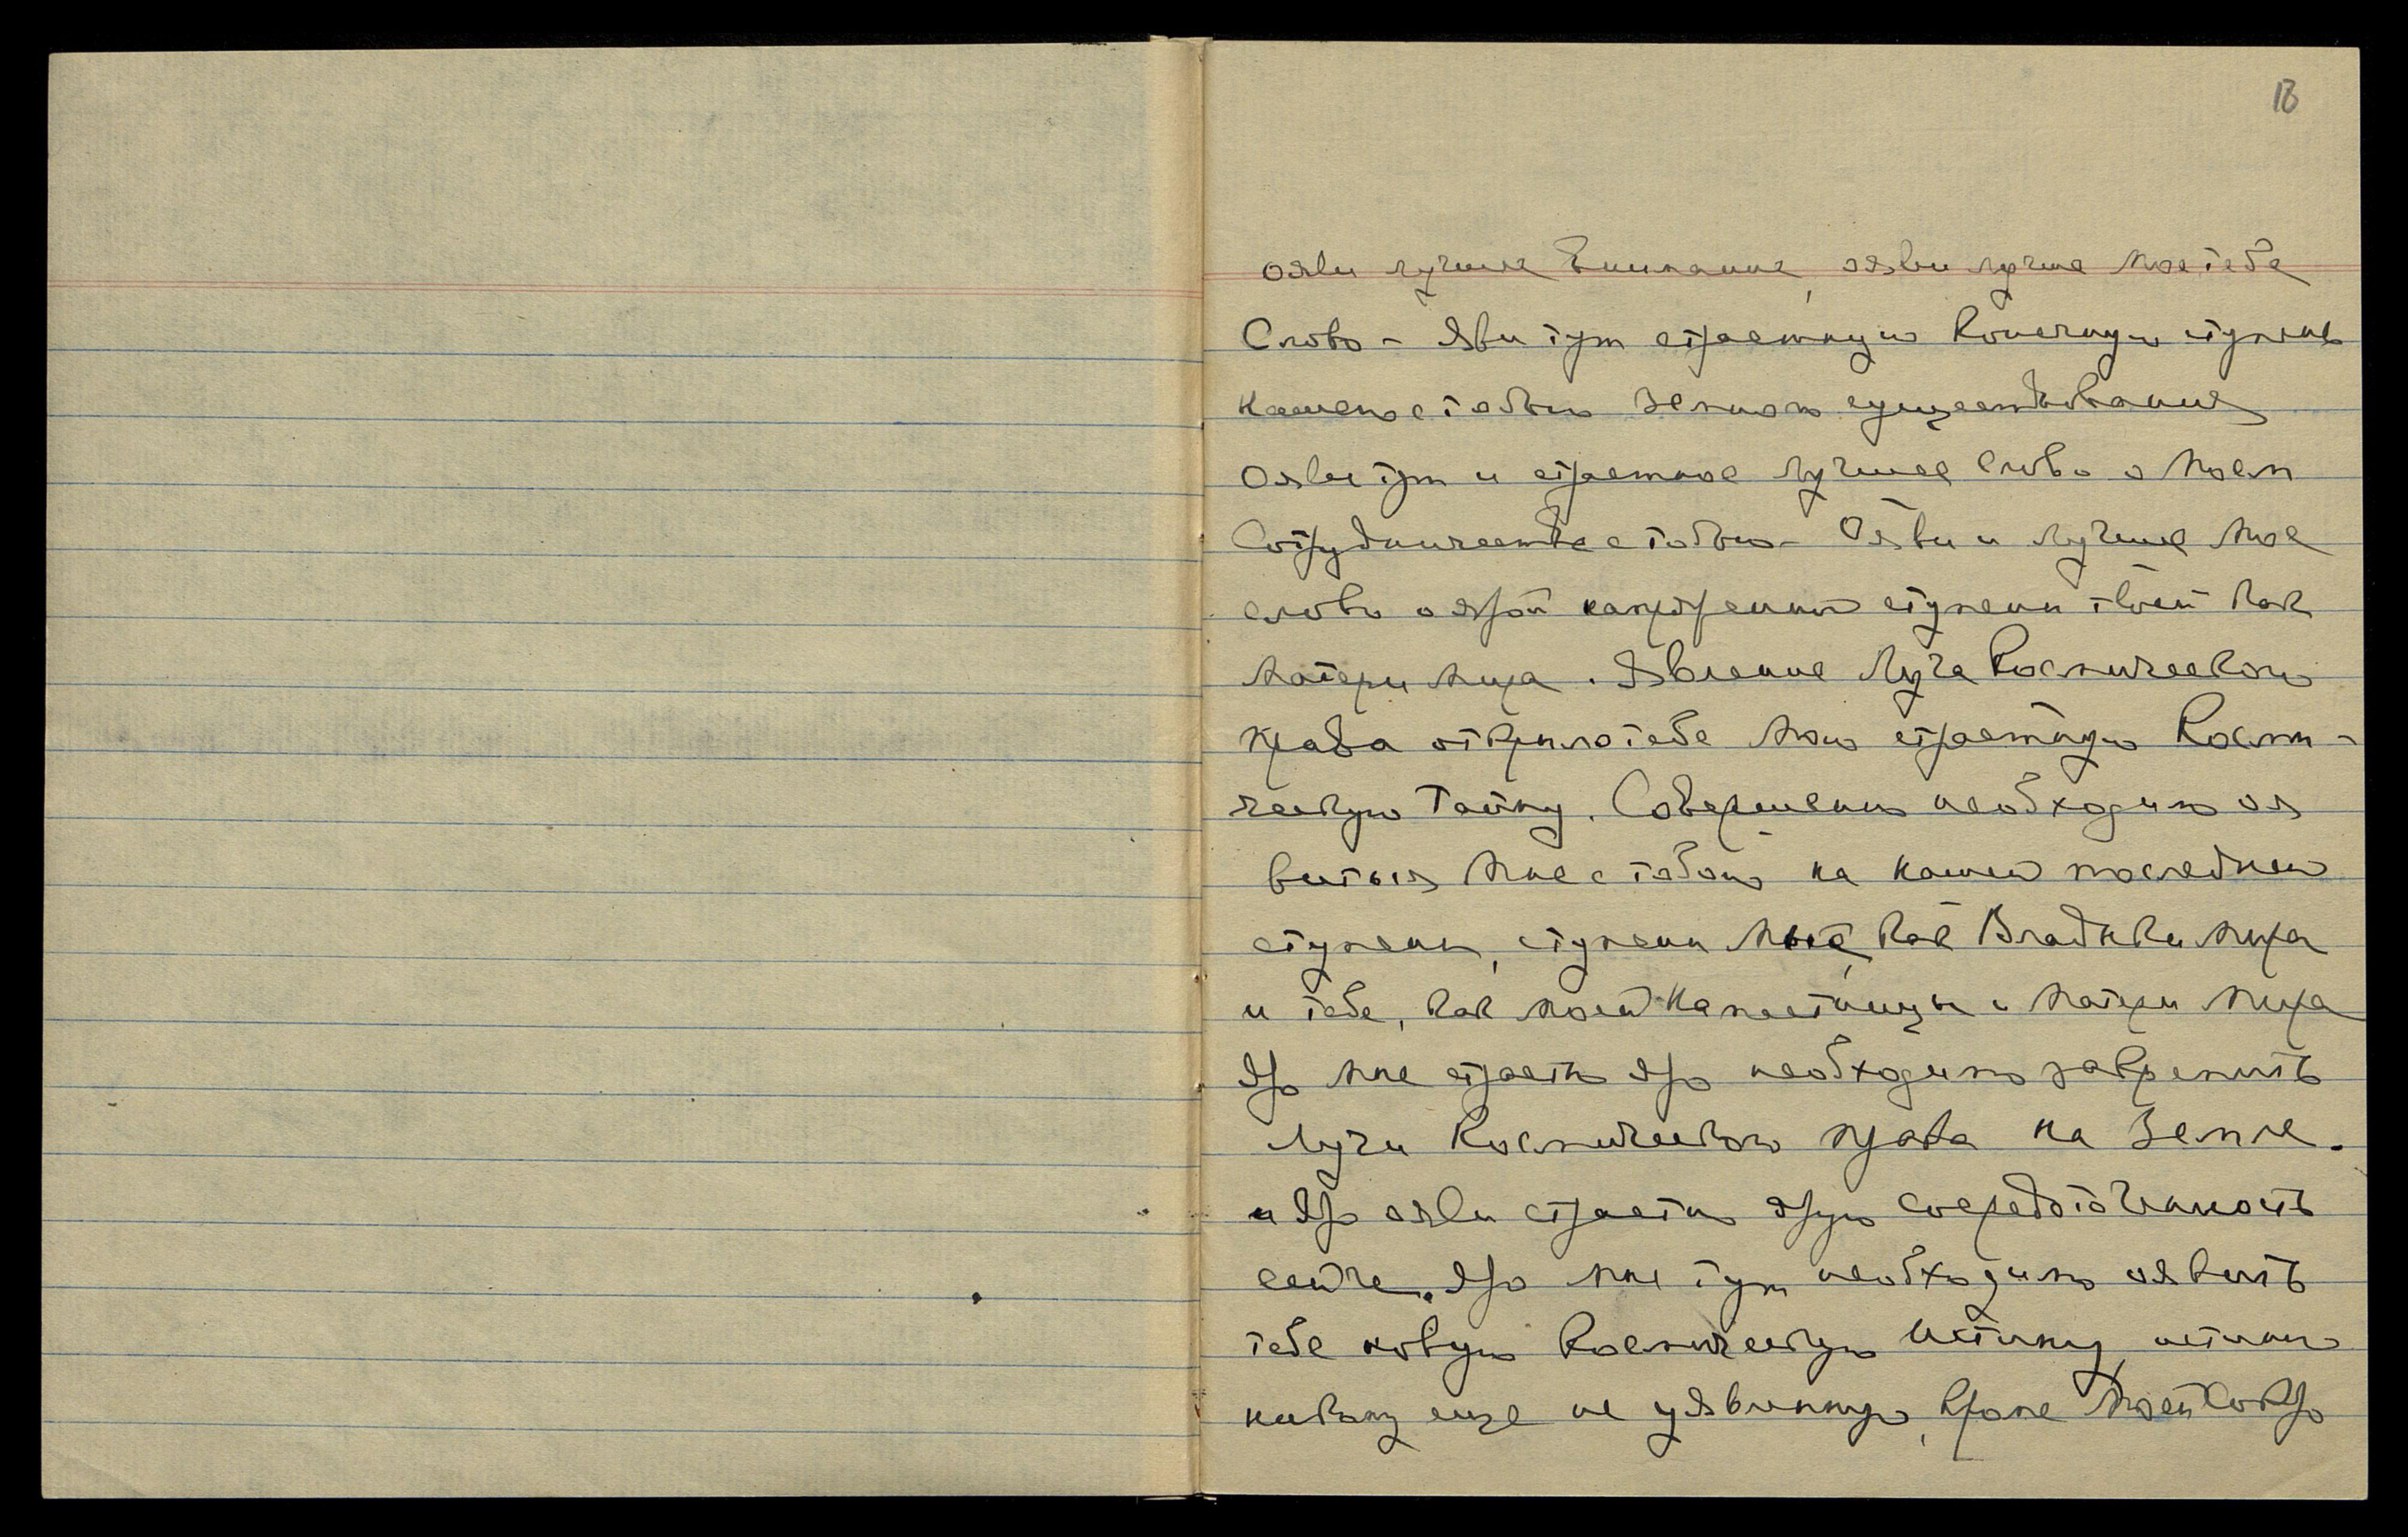 18
ояви лучшее внимание, ояви лучше Мое тебе
Слово – Яви тут страстную Конечную ступень
нашего с тобою земного существования
Ояви тут и страстное лучшее Слово о Моем
Сотрудничестве с тобою – Ояви и лучшее Мое
слово о ярой напряженной ступени твоей как
Матери Мира. Явление Луча Космического
права открыло тебе Мою страстную Косми-
ческую Тайну. Совершенно необходимо оя
виться Мне с тобою на нашей последней
ступени, ступени Мне, как Владыки Мира
и тебе, как Моей Наместницы и Матери Мира
Яро Мне страстно яро необходимо закрепить
Лучи Космического права на Земле.
и Яро ояви страстно ярую сосредоточенность
сейчас. Яро Мне тут необходимо оявить
тебе новую Космическую Истину, истину
никому еще не уявленную, кроме Моей Сокро